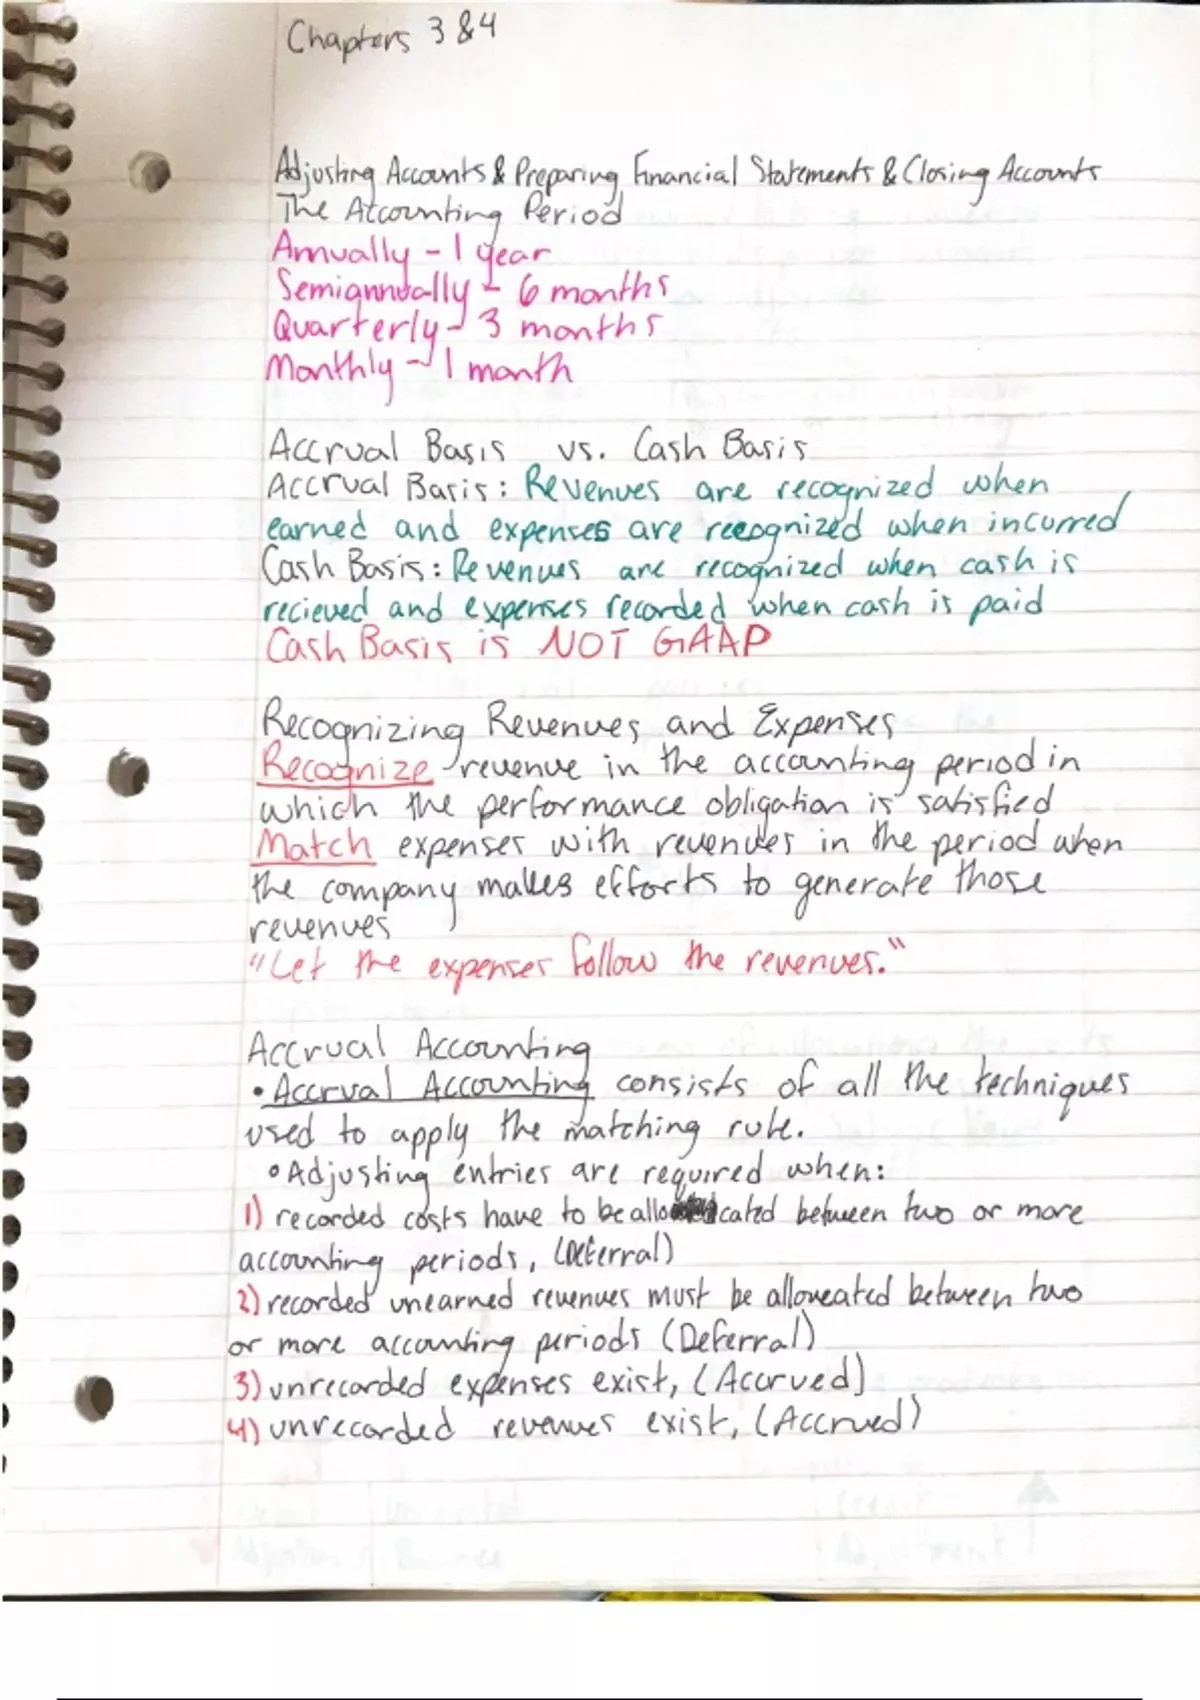 Chapters 3 & 4
Adjusting Accounts & Preparing Financial Statements & Closing Accounts
The Accounting Period
Annually - 1 year
Semiannually - 6 months
Quarterly - 3 months
Monthly - 1 month
Accrual Basis vs. Cash Basis
Accrual Basis: Revenues are recognized when
earned and expenses are recognized when incurred
Cash Basis: Revenues are recognized when cash is
recieved and expenses recorded when cash is paid
Cash Basis is NOT GAAP
Recognizing Revenues and Expenses
Recognize revenue in the accounting period in
which the performance obligation is satisfied
Match expenses with revenues in the period when
the company makes efforts to generate those
revenues
"Let the expenses follow the revenues."
Accrual Accounting
• Accrual Accounting consists of all the techniques
used to apply the matching rule.
• Adjusting entries are required when:
1) recorded costs have to be allocated between two or more
accounting periods, (Deferral)
2) recorded unearned revenues must be between two
or more accounting periods (Deferral)
3) unrecorded expenses exist, (Accrued)
4) unrecorded revenues exist, (Accrued)